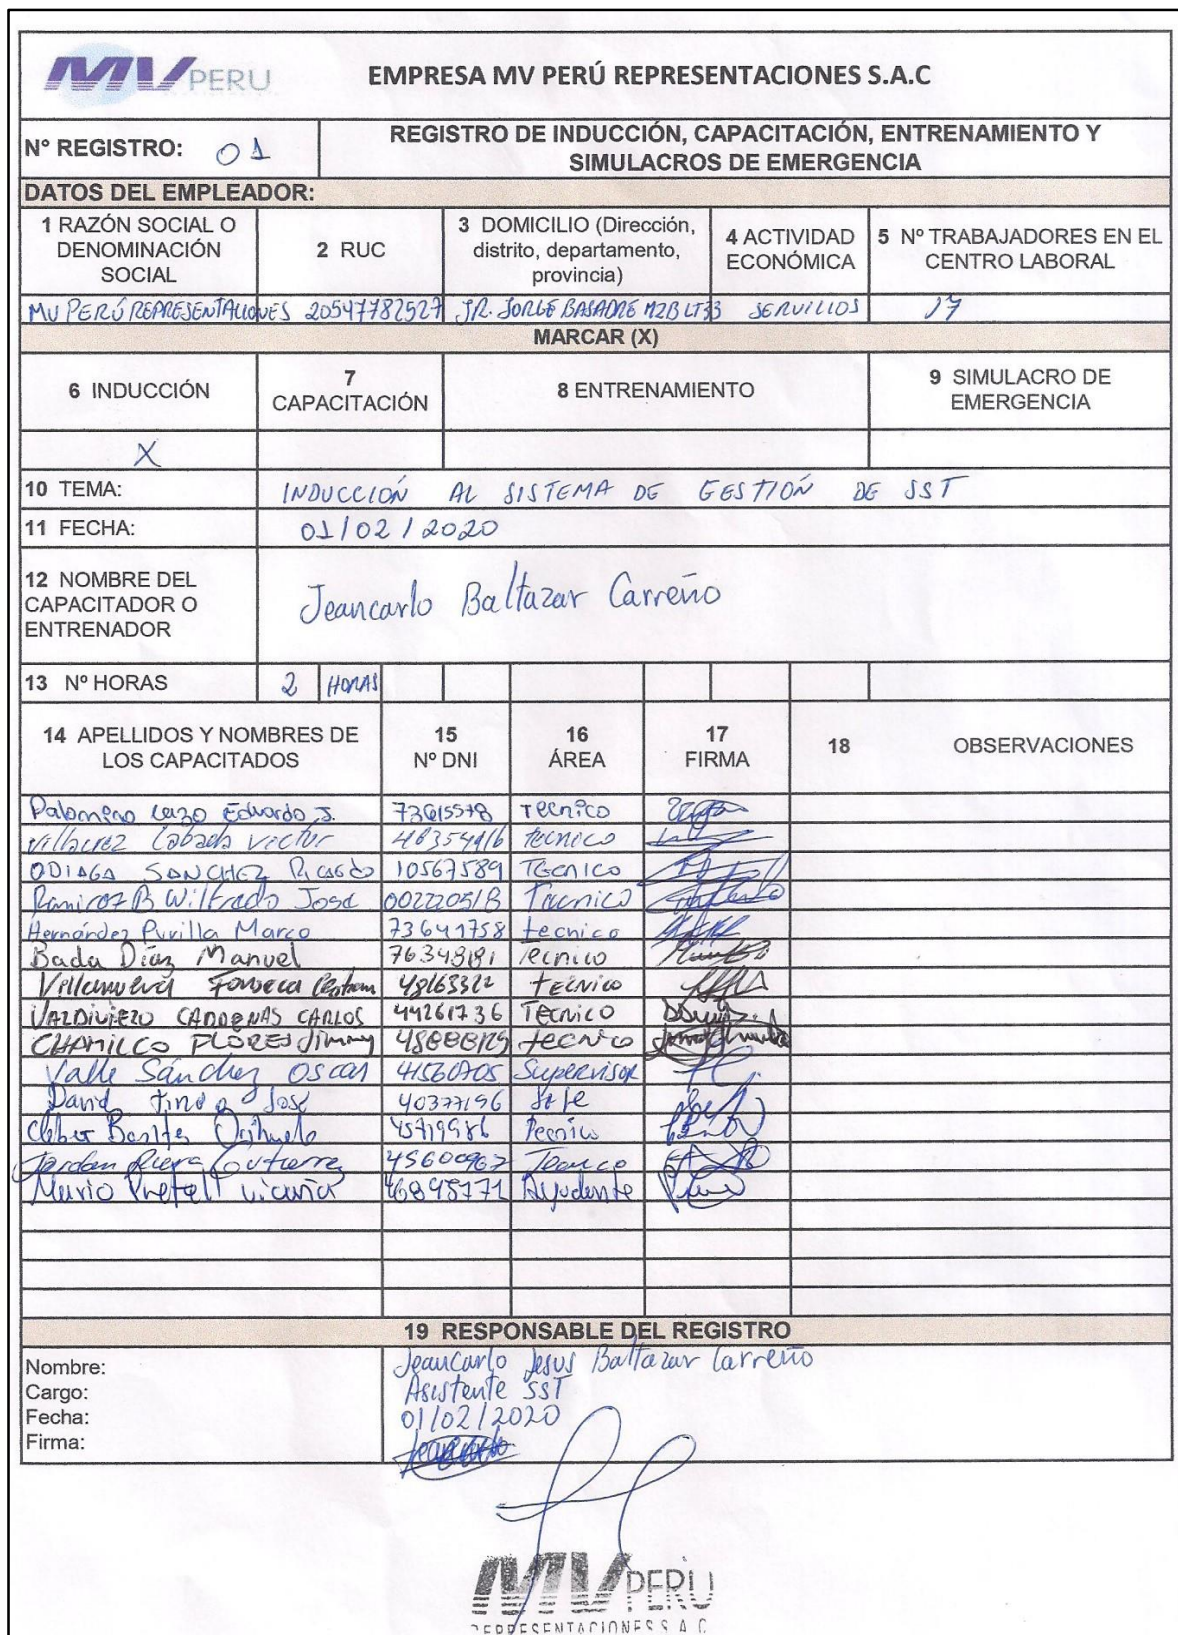 MV PERU
EMPRESA MV PERÚ REPRESENTACIONES S.A.C
Nº REGISTRO: 01
REGISTRO DE INDUCCIÓN, CAPACITACIÓN, ENTRENAMIENTO Y
SIMULACROS DE EMERGENCIA
DATOS DEL EMPLEADOR:
1 RAZÓN SOCIAL O DENOMINACIÓN SOCIAL
2 RUC
3 DOMICILIO (Dirección, distrito, departamento, provincia)
4 ACTIVIDAD ECONÓMICA
5 Nº TRABAJADORES EN EL CENTRO LABORAL
MV PERÚ REPRESENTACIONES 20547782527 JR. JORGE BASADRE MZB LT33 SERVICIOS 17
MARCAR (X)
6 INDUCCIÓN
7 CAPACITACIÓN
8 ENTRENAMIENTO
9 SIMULACRO DE EMERGENCIA
X
10 TEMA: INDUCCIÓN AL SISTEMA DE GESTIÓN DE SST
11 FECHA: 01/02/2020
12 NOMBRE DEL CAPACITADOR O ENTRENADOR
Jeancarlo Baltazar Carreño
13 Nº HORAS 2 HORAS
14 APELLIDOS Y NOMBRES DE LOS CAPACITADOS
15 Nº DNI
16 ÁREA
17 FIRMA
18 OBSERVACIONES
Palomino Lazo Eduardo J. Tecnico
Victor tecnico
ODIAGA SANCHEZ Ricardo 10567589 Tecnico
Ramirez B Wilfredo Jose 002220518 Tecnico
Hernández Purilla Marco 73641758 tecnico
Bada Díaz Manuel Tecnico
Villanueva Fonseca tecnico
VALDIVIEZO CARDENAS CARLOS 44261736 Tecnico
CHAMILCO FLORES Jimmy tecnico
Valle Sánchez Oscar Supervisor
David José 40377196 Jefe
Tecnico
Jordan Gutierrez Tecnico
Mario 46898771 Ayudante
19 RESPONSABLE DEL REGISTRO
Nombre: Jeancarlo Jesus Baltazar Carreño
Cargo: Asistente SST
Fecha: 01/02/2020
Firma:
MV PERÚ
REPRESENTACIONES S.A.C